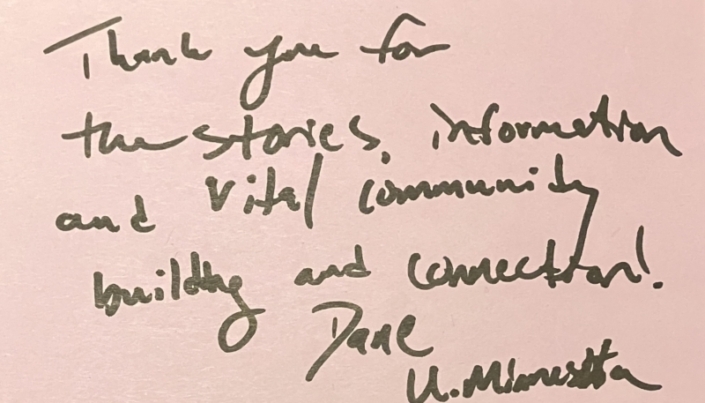 Thank you for
the stories, information
and vital community
building and connection!
Dane
U. Minnesota